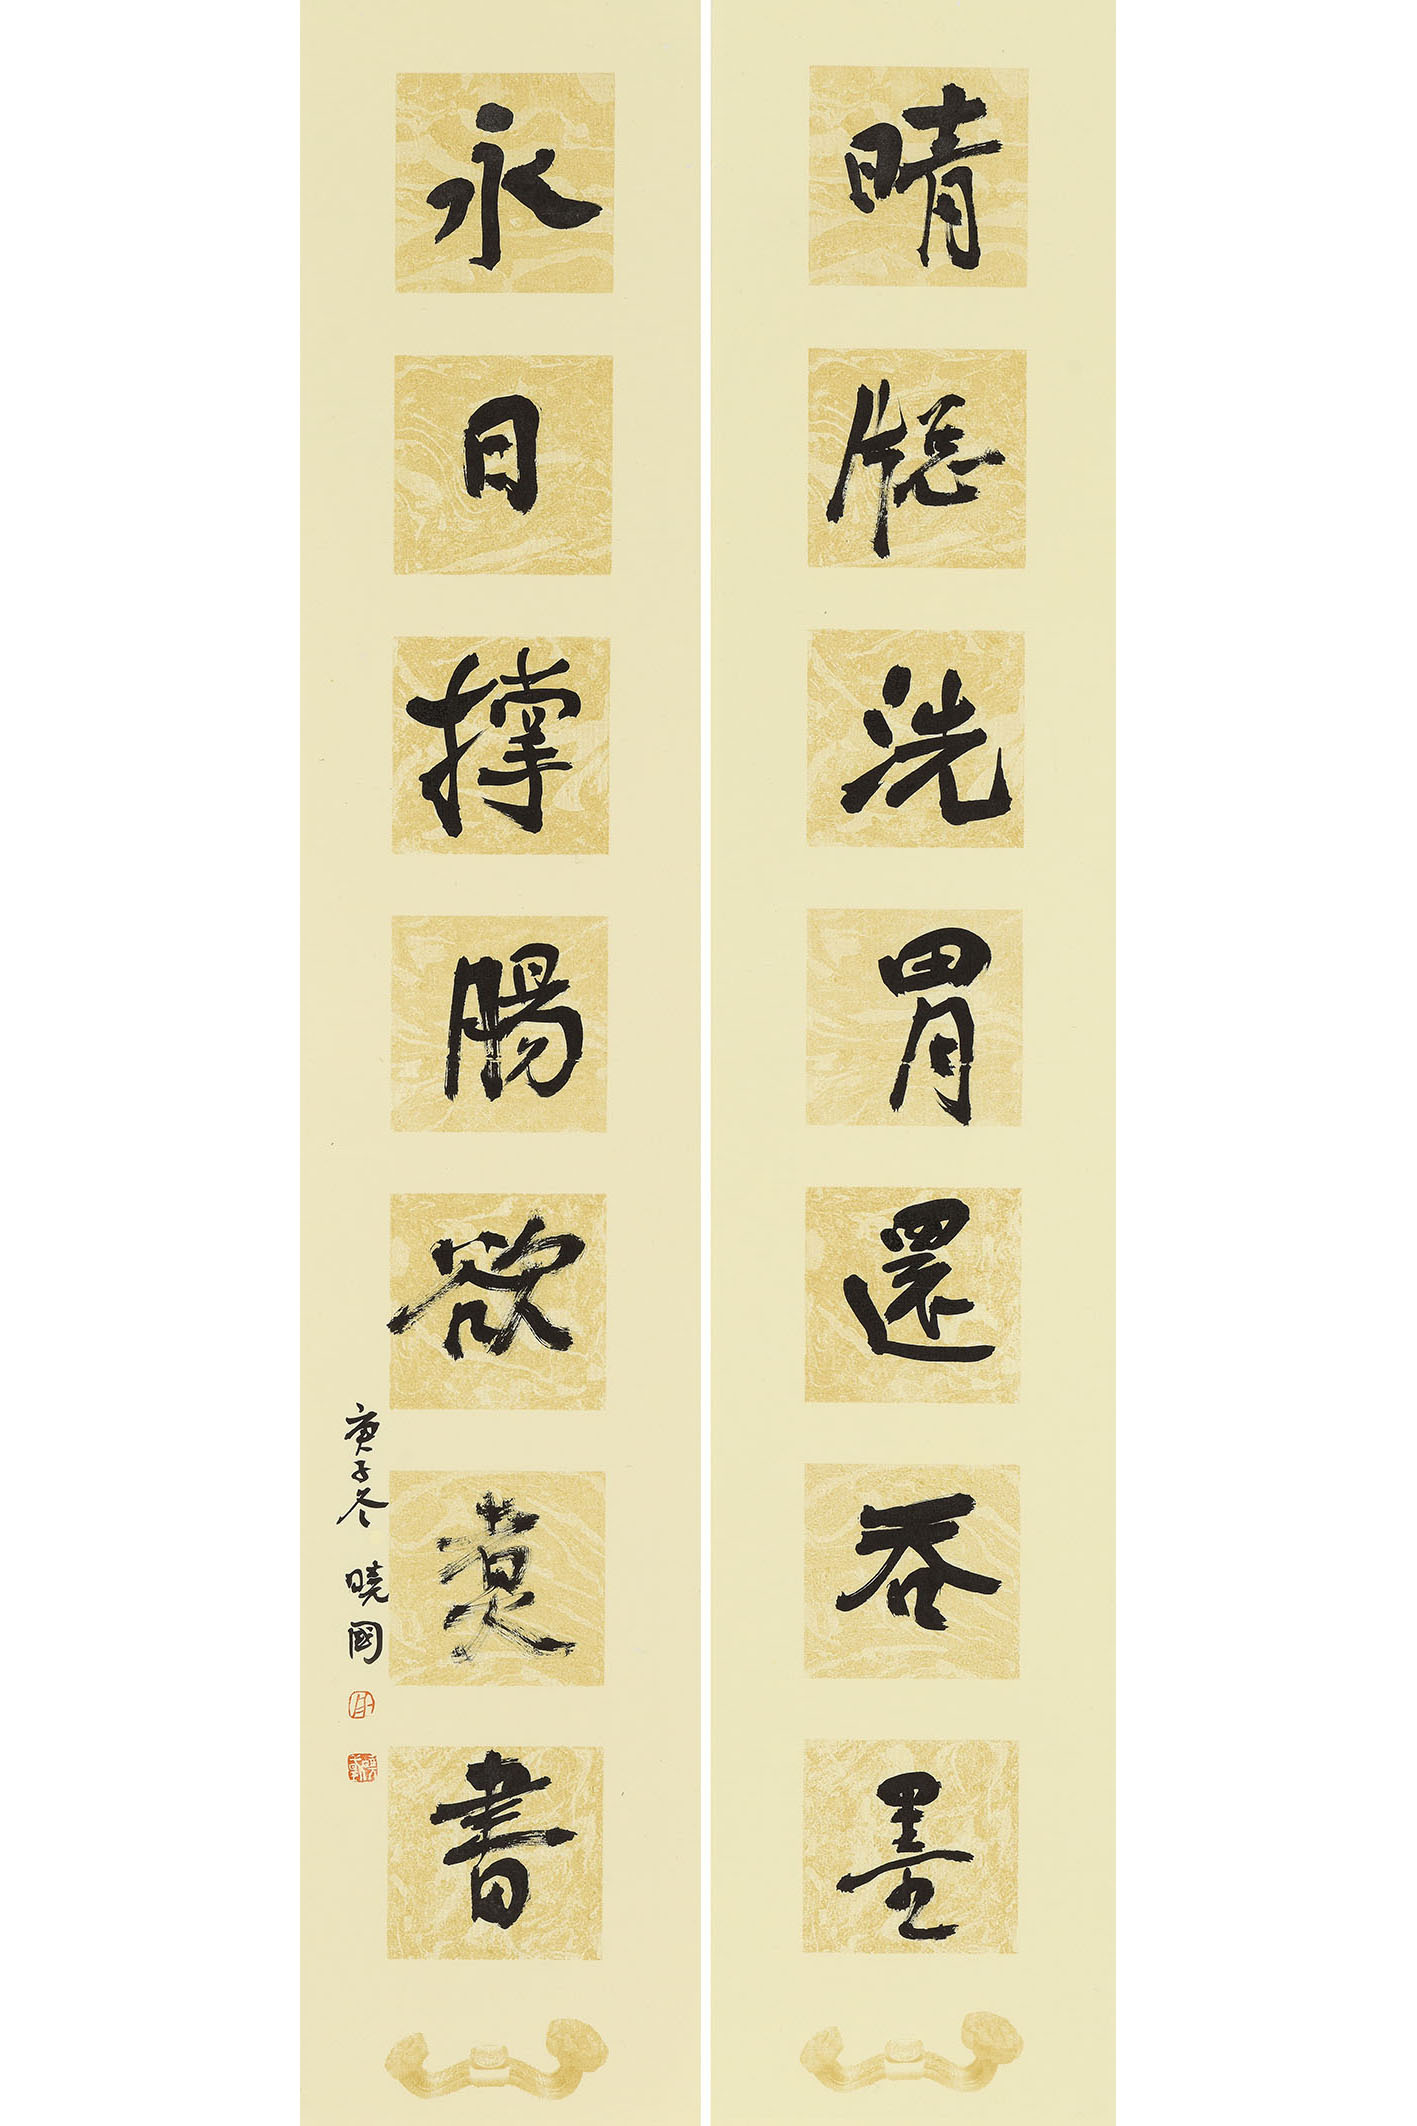 晴牕洗胃還吞墨
永日撐腸欲煮書
庚子冬 曉國